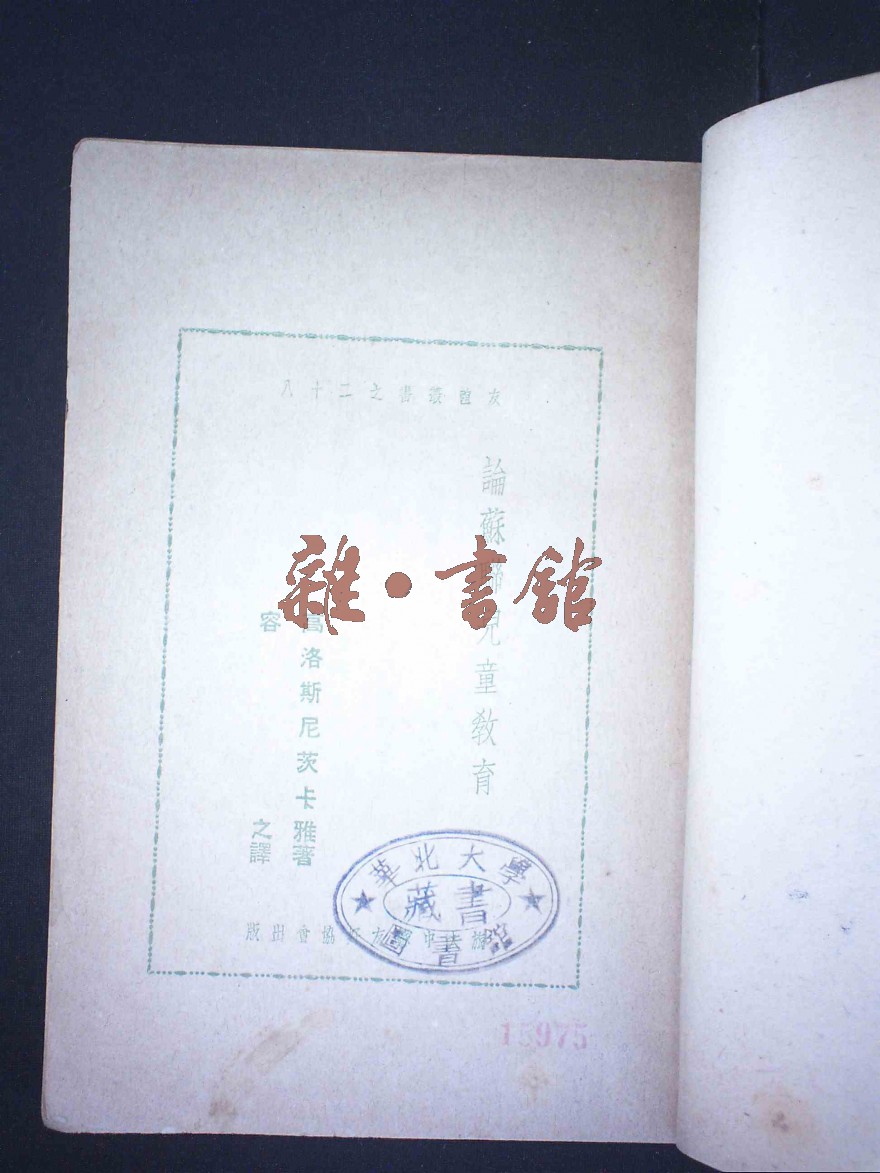 友誼叢書之二十八
論蘇聯兒童教育
高洛斯尼茨卡雅著
容之譯
協會出版
雜·書館
華北大學
藏書
圖書館
15975